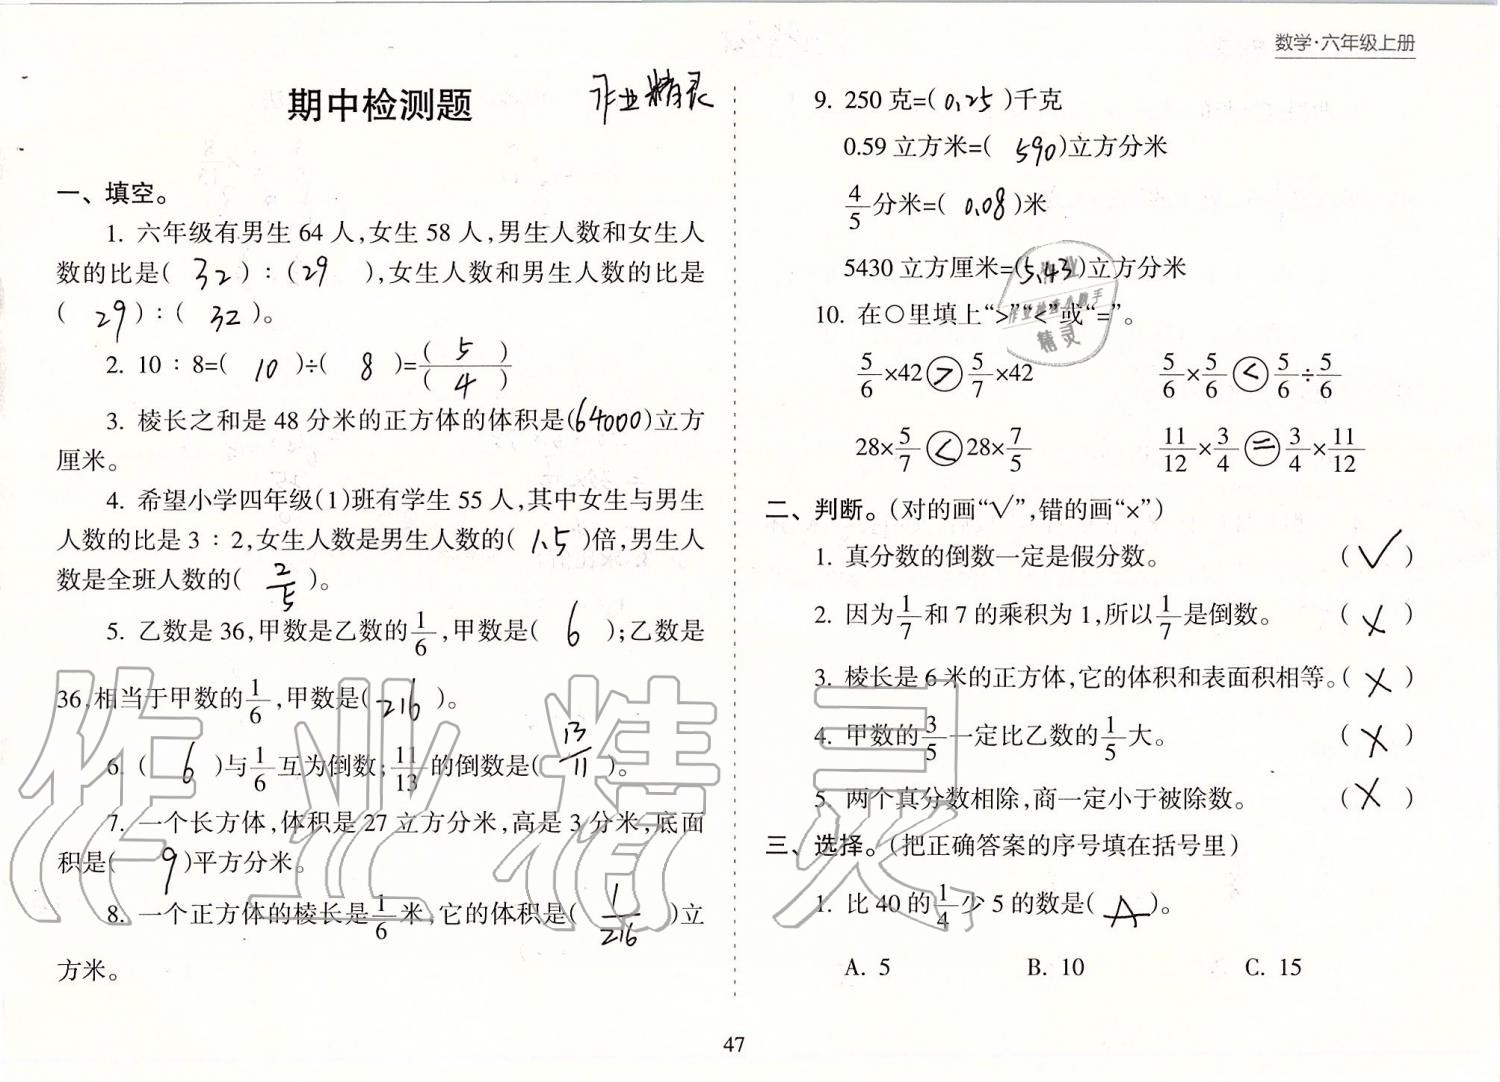 数学·六年级上册
期中检测题
作业精灵
一、填空。
1. 六年级有男生 64 人,女生 58 人,男生人数和女生人
数的比是( 32 ):(29 ),女生人数和男生人数的比是
( 29 ):( 32 )。
2. 10 : 8=( 10 )÷( 8 )=( 5 )/( 4 )
3. 棱长之和是 48 分米的正方体的体积是(64000)立方
厘米。
4. 希望小学四年级(1)班有学生 55 人,其中女生与男生
人数的比是 3 : 2,女生人数是男生人数的( 1.5 )倍,男生人
数是全班人数的( 2/5 )。
5. 乙数是 36,甲数是乙数的1/6,甲数是( 6 );乙数是
36,相当于甲数的1/6,甲数是( 216 )。
6. ( 6 )与1/6互为倒数;11/13的倒数是( 13/11 )。
7. 一个长方体,体积是 27 立方分米,高是 3 分米,底面
积是( 9 )平方分米。
8. 一个正方体的棱长是1/6米,它的体积是( 1/216 )立
方米。
9. 250 克=( 0.25 )千克
0.59 立方米=( 590 )立方分米
4/5分米=( 0.08 )米
5430 立方厘米=(5.43)立方分米
10. 在○里填上“>”“<”或“=”。
5/6×42 > 5/7×42 5/6×5/6 < 5/6÷5/6
28×5/7 < 28×7/5 11/12×3/4 = 3/4×11/12
二、判断。(对的画“√”,错的画“×”)
1. 真分数的倒数一定是假分数。 ( √ )
2. 因为1/7和 7 的乘积为 1,所以1/7是倒数。 ( × )
3. 棱长是 6 米的正方体,它的体积和表面积相等。( × )
4. 甲数的3/5一定比乙数的1/5大。 ( × )
5. 两个真分数相除,商一定小于被除数。 ( × )
三、选择。(把正确答案的序号填在括号里)
1. 比 40 的1/4少 5 的数是( A )。
A. 5 B. 10 C. 15
47
作业精灵
作业
作业检查小助手
精灵